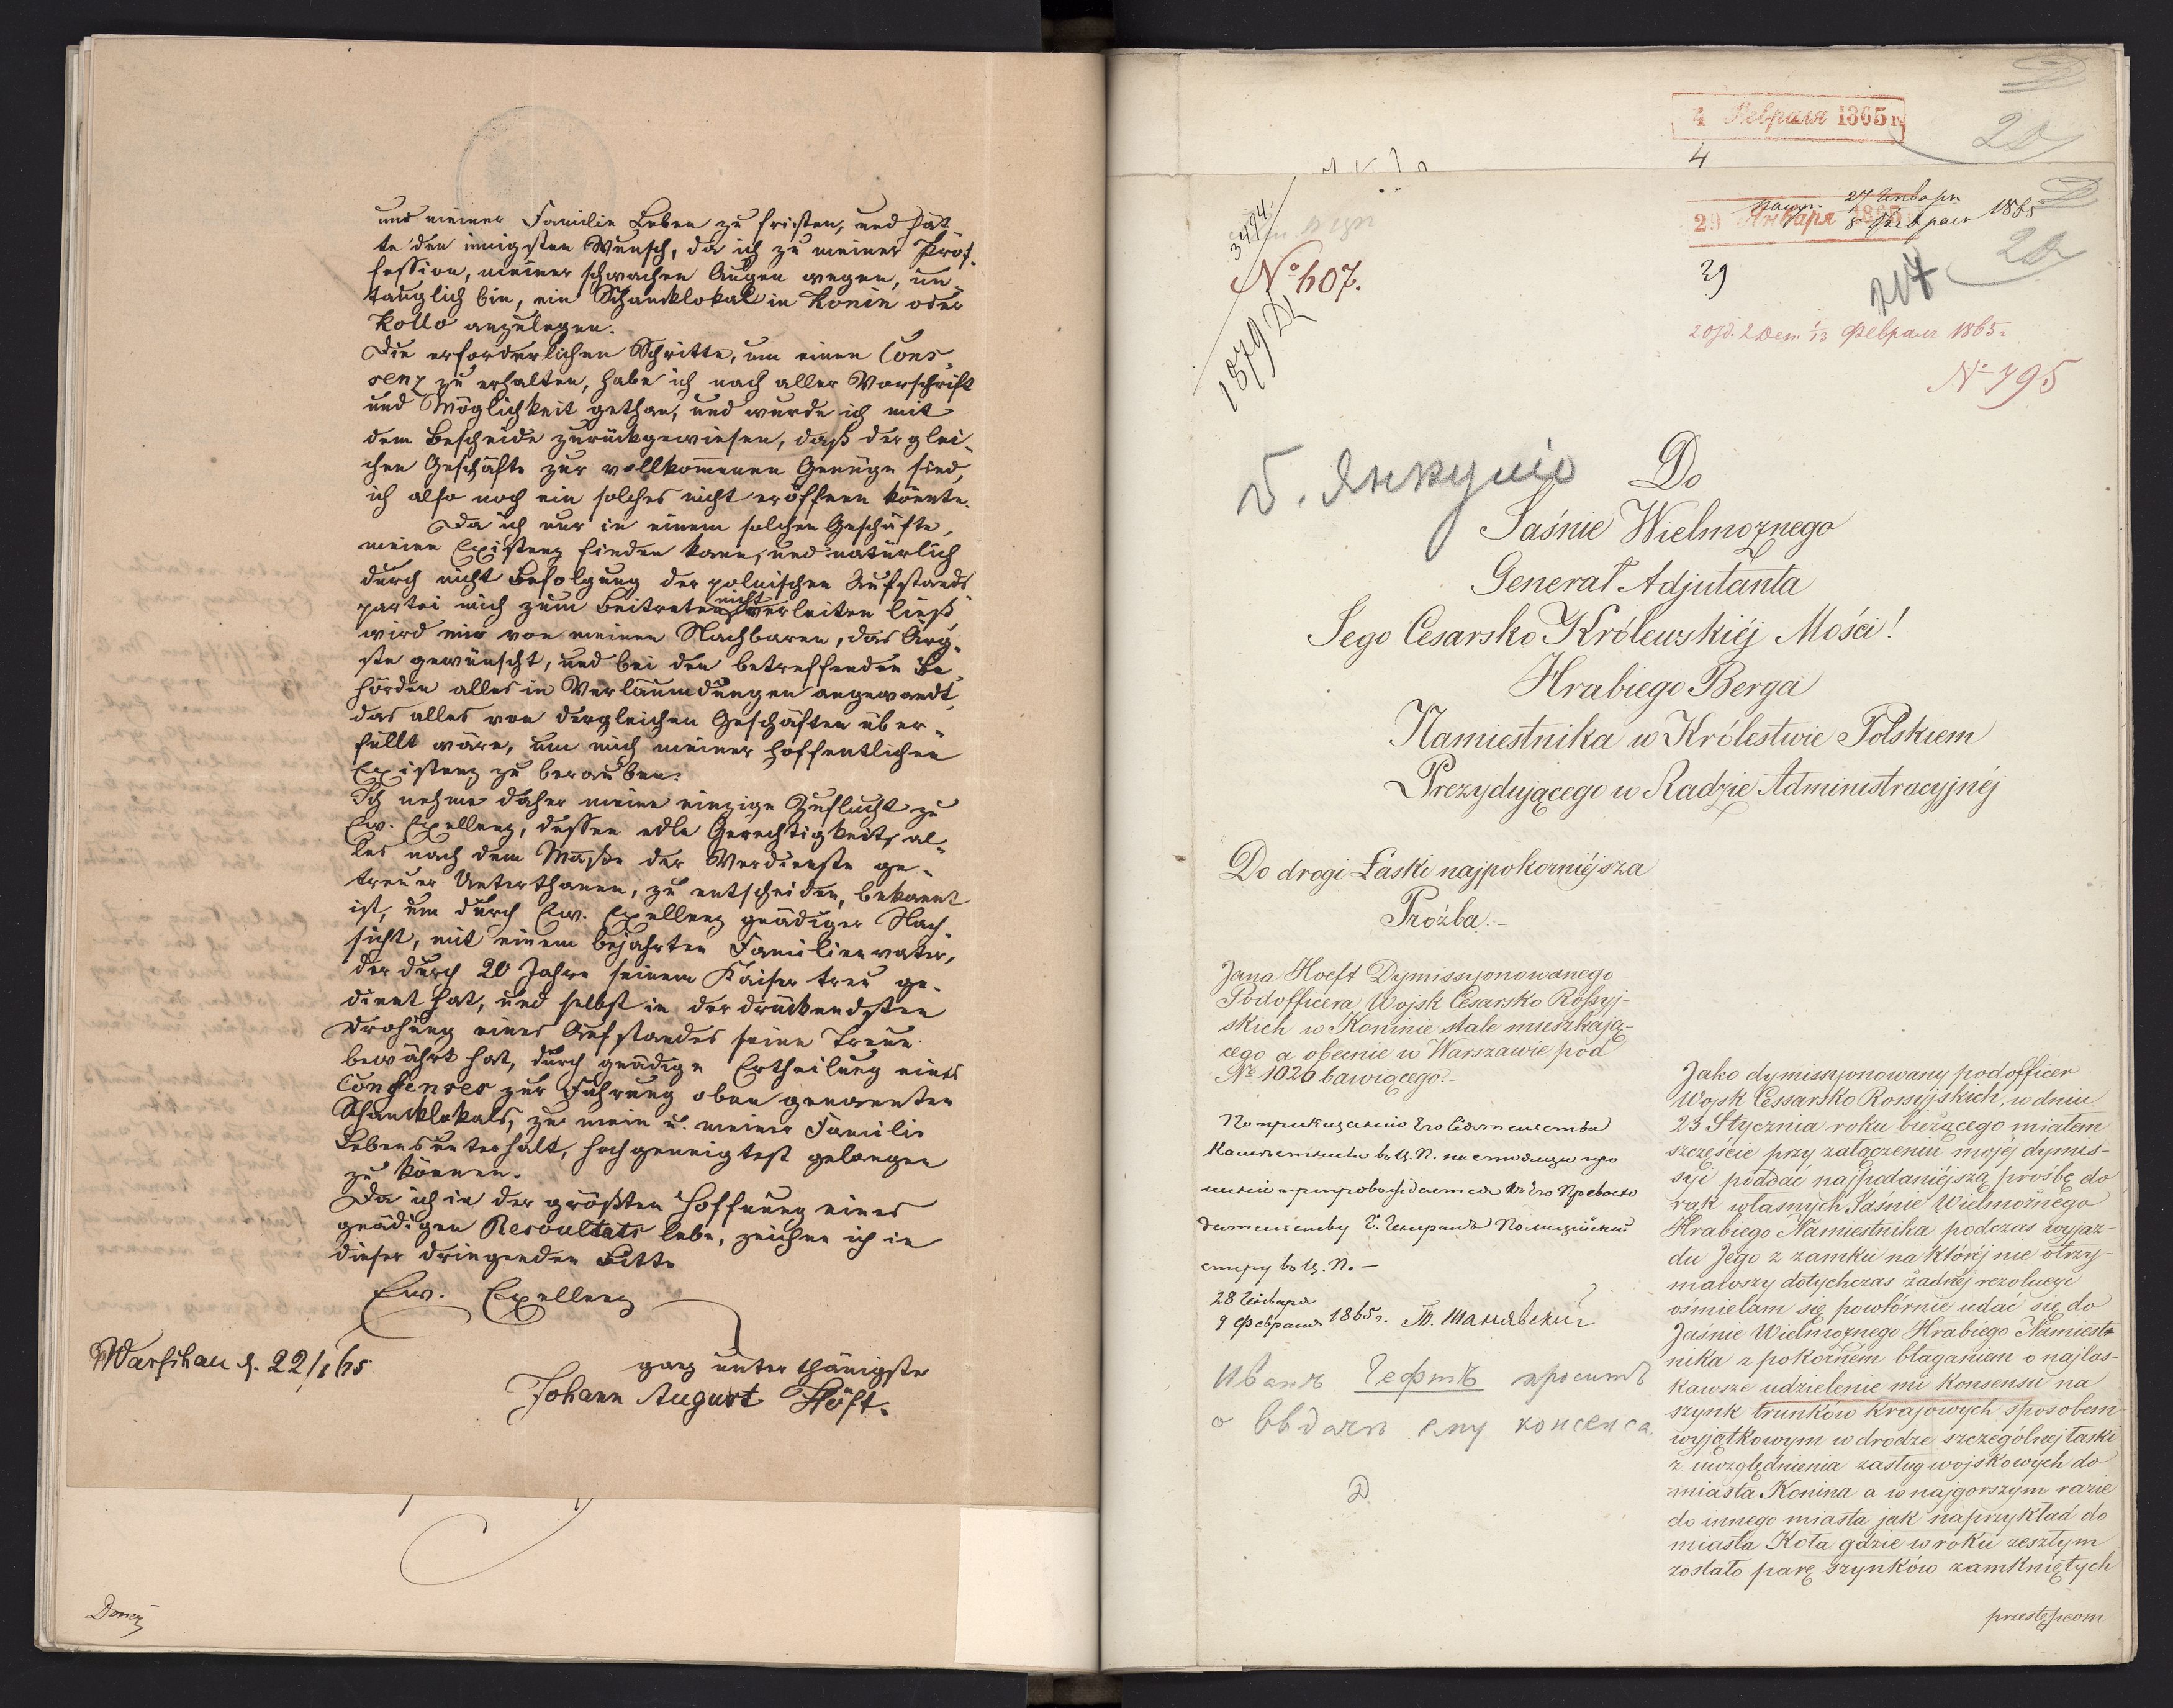 und meiner Familie Leben zu fristen, und hat
te den innigsten Wunsch, da ich zu meiner Prof-
fession, meiner schwachen Augen wegen, un-
tauglich bin, ein Schanklokal in Konin oder
Kollo anzulegen.
Die erforderlichen Schritte, um einen Cons-
senz zu erhalten, habe ich nach aller Vorschrift
und Möglichkeit gethan, und wurde ich mit
dem Bescheide zurückgewiesen, daß der glei-
chen Geschäfte zur vollkommenen Genüge sind,
ich also noch ein solches nicht eröffnen könnte.
Da ich nur in einem solchen Geschäfte,
meine Existenz finden kann, und natürlich
durch nicht Befolgung der polnischen Aufstands
partei mich zum Beitreten nicht verleiten ließ
wird mir von meinen Nachbaren, das Ärg-
ste gewünscht, und bei den betreffenden Be-
hörden alles in Verläumdungen angewandt,
das alles von dergleichen Geschäften über-
füllt wäre, um mich meiner hoffentlichen
Existenz zu berauben.
Ich nehme daher meine einzige Zuflucht zu
Ew. Exellenz, dessen edle Gerechtigkeit, al-
les nach dem Maße der Verdienste ge-
treuer Unterthanen, zu entscheiden, bekannt
ist, um durch Ew. Exellenz gnädiger Nach-
sicht, mit einem bejahrten Familienvater,
der durch 20 Jahre seinem Kaiser treu ge-
dient hat, und selbst in der drückendsten
Drohung eines Aufstandes seine Treue
bewährt hat, durch gnädige Ertheilung eines
Consenses zur Führung oben genannten
Schanklokals, zu mein u. meiner Familie
Lebensunterhalt, hochgeneigtest gelangen
zu können.
Da ich in der größten Hoffnung eines
gnädigen Resoultats lebe, zeichne ich in
dieser dringenden Bitte
Ew. Exellenz
Warschau d. 22/1 65
ganz unterthänigste
Johann August Höft.
4 Февраля 1865 г.
20
4
3494.
1879 D
№ 607.
29 Января 1865
27 Января
8 Февраля 1865
29
20
217
2 Отд. 2 Дет. 1/13 Февраля 1865 г.
№ 795
Do
Jaśnie Wielmożnego
Generał Adjutanta
Jego Cesarsko Królewskiéj Mości!
Hrabiego Berga
Namiestnika w Królestwie Polskiem
Prezydującego w Radzie Administracyjnéj
Do drogi Łaski najpokorniéjsza
Proźba.-
Jana Hoeft Dymissyonowanego
Podofficera Wojsk Cesarsko Rossyj-
skich w Koninie stale mieszkają-
cego a obecnie w Warszawie pod
№ 1020 bawiącego.-
По приказанію Его Сіятельства
Намѣстника въ Ц. П. настоящее про
шеніе препровождается къ Его Превосхо
дительству Г. Генералъ Полицій
ц. П.-
28 Января
9 Февраля 1865 г.
Иванъ Гефтъ проситъ
о выдачѣ ему консенса.
Jako dymissyonowany podofficer
Wojsk Cessarsko Rossyjskich, w dniu
23 Stycznia roku bieżącego miałem
szczęście przy załączeniu mojéj dymis-
syi poddać najpedaniéjszą prośbę do
rąk własnych Jaśnie Wielmożnego
Hrabiego Namiestnika podczas wyjaz-
du Jego z zamku na któréj nie otrzy-
mawszy dotychczas żadnéj rezolucyi
ośmielam się powtórnie udać się do
Jaśnie Wielmożnego Hrabiego Namiest-
nika z pokornem błaganiem o najłas-
kawsze udzielenie mi konsensu na
szynk trunków krajowych sposobem
wyjątkowym w drodze szczególnéj łaski
z uwzględnienia zasług wojskowych do
miasta Konina a w najgorszym razie
do innego miasta jak naprzykład do
miasta Koła gdzie w roku zeszłym
zostało parę szynków zamkniętych
przestępcom